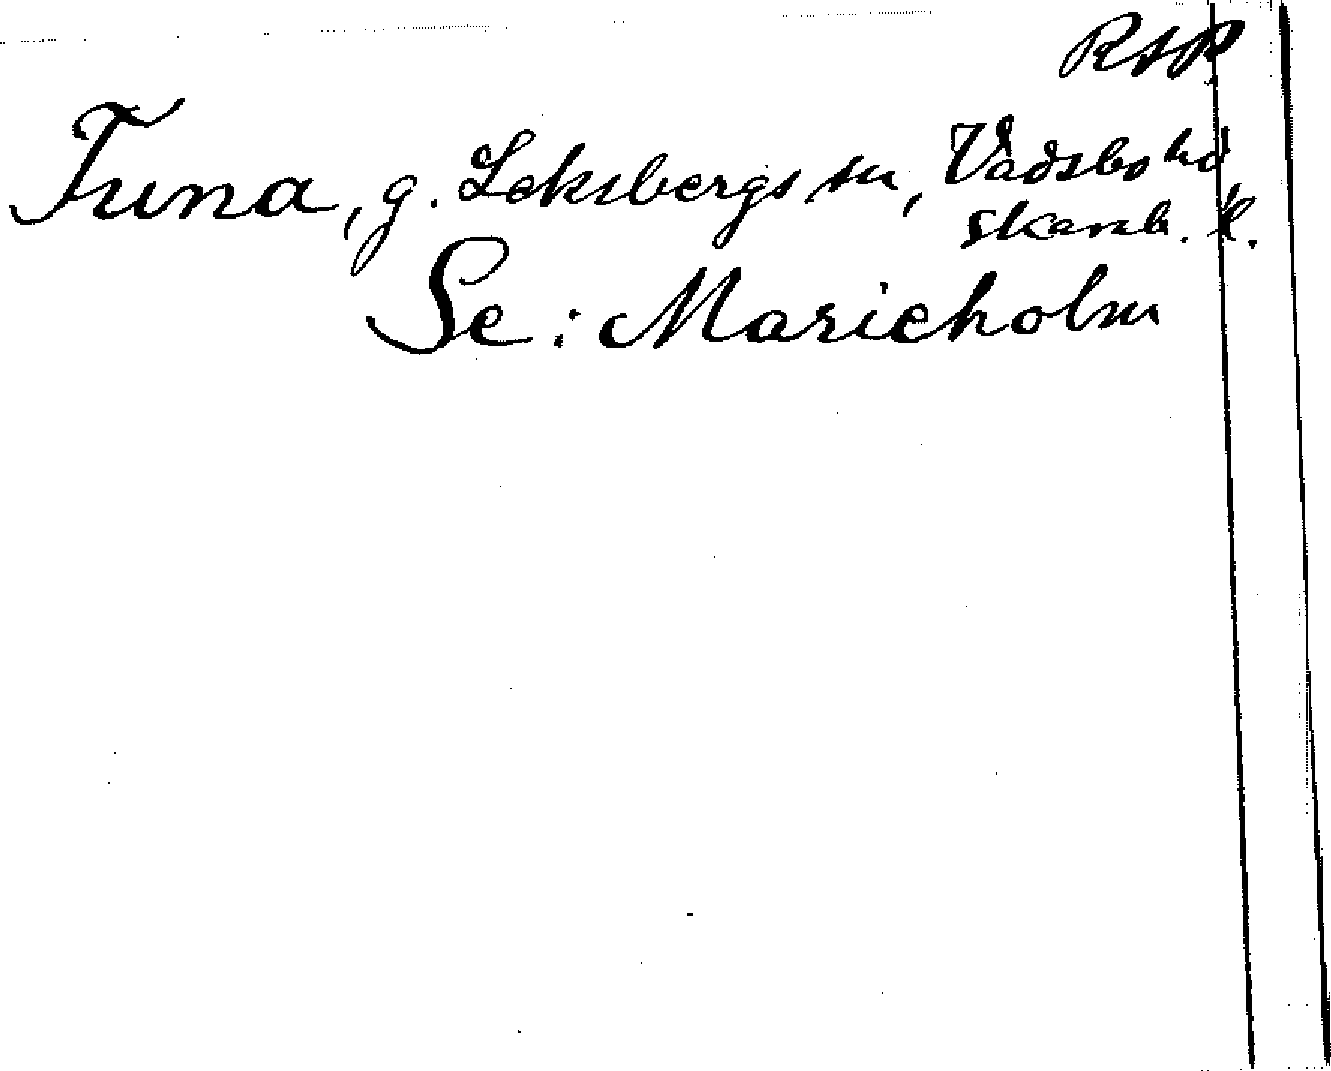 RAP
Tuna, g. Leksbergs sn, Vadsbo hd
Skarab. l.
Se: Marieholm